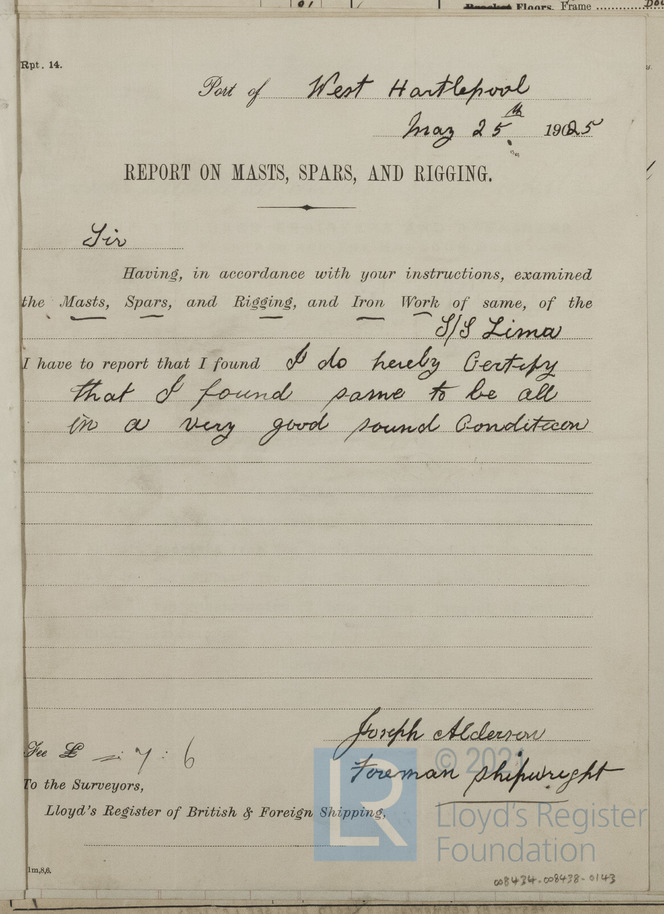 Floors. Frame
Rpt. 14.
Port of West Hartlepool
May 25th 1925
REPORT ON MASTS, SPARS, AND RIGGING.
Sir
Having, in accordance with your instructions, examined
the Masts, Spars, and Rigging, and Iron Work of same, of the
S/S Lima
I have to report that I found I do hereby Certify
that I found same to be all
in a very good sound Condition
Joseph Alderson
Fee £ =: 7 : 6
Foreman Shipwright
To the Surveyors,
Lloyd's Register of British & Foreign Shipping,
LR
© 2021
Lloyd's Register
Foundation
1m,8,6.
008434-008438-0143